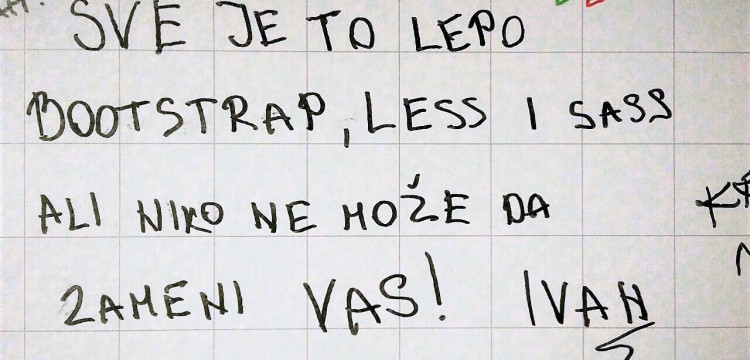 SVE JE TO LEPO
BOOTSTRAP, LESS I SASS
ALI NIKO NE MOŽE DA
ZAMENI VAS! IVAN